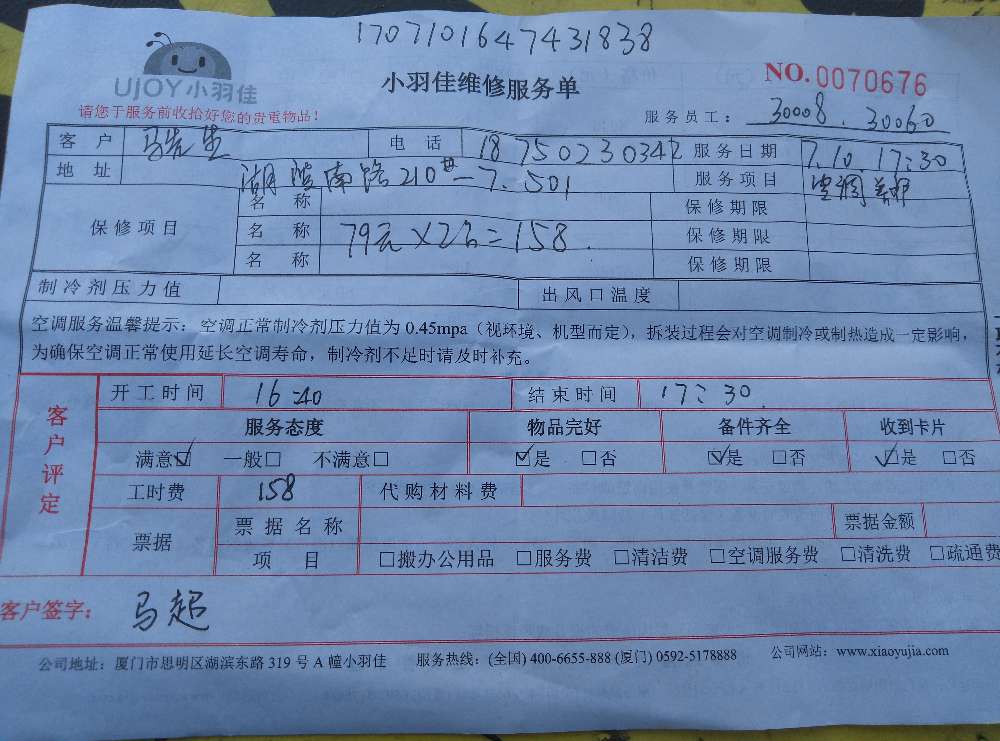 1707101647431838
UJOY小羽佳
小羽佳维修服务单
NO.0070676
请您于服务前收拾好您的贵重物品！
服务员工： 30008. 30060
客户 马先生 电话 18750230342 服务日期 7.10. 17:30
地址 湖滨南路210#-7.501 服务项目 空调
保修项目 名称 保修期限
名称 79元×2台=158. 保修期限
名称 保修期限
制冷剂压力值 出风口温度
空调服务温馨提示：空调正常制冷剂压力值为 0.45mpa（视环境、机型而定），拆装过程会对空调制冷或制热造成一定影响，
为确保空调正常使用延长空调寿命，制冷剂不足时请及时补充。
客户评定
开工时间 16:40 结束时间 17:30.
服务态度 物品完好 备件齐全 收到卡片
满意☑ 一般□ 不满意□ ☑是 □否 ☑是 □否 ☑是 □否
工时费 158 代购材料费
票据 票据名称 票据金额
项目 □搬办公用品 □服务费 □清洁费 □空调服务费 □清洗费 □疏通费
客户签字： 马超
公司地址：厦门市思明区湖滨东路 319 号 A 幢小羽佳 服务热线：(全国) 400-6655-888 (厦门) 0592-5178888 公司网站：www.xiaoyujia.com